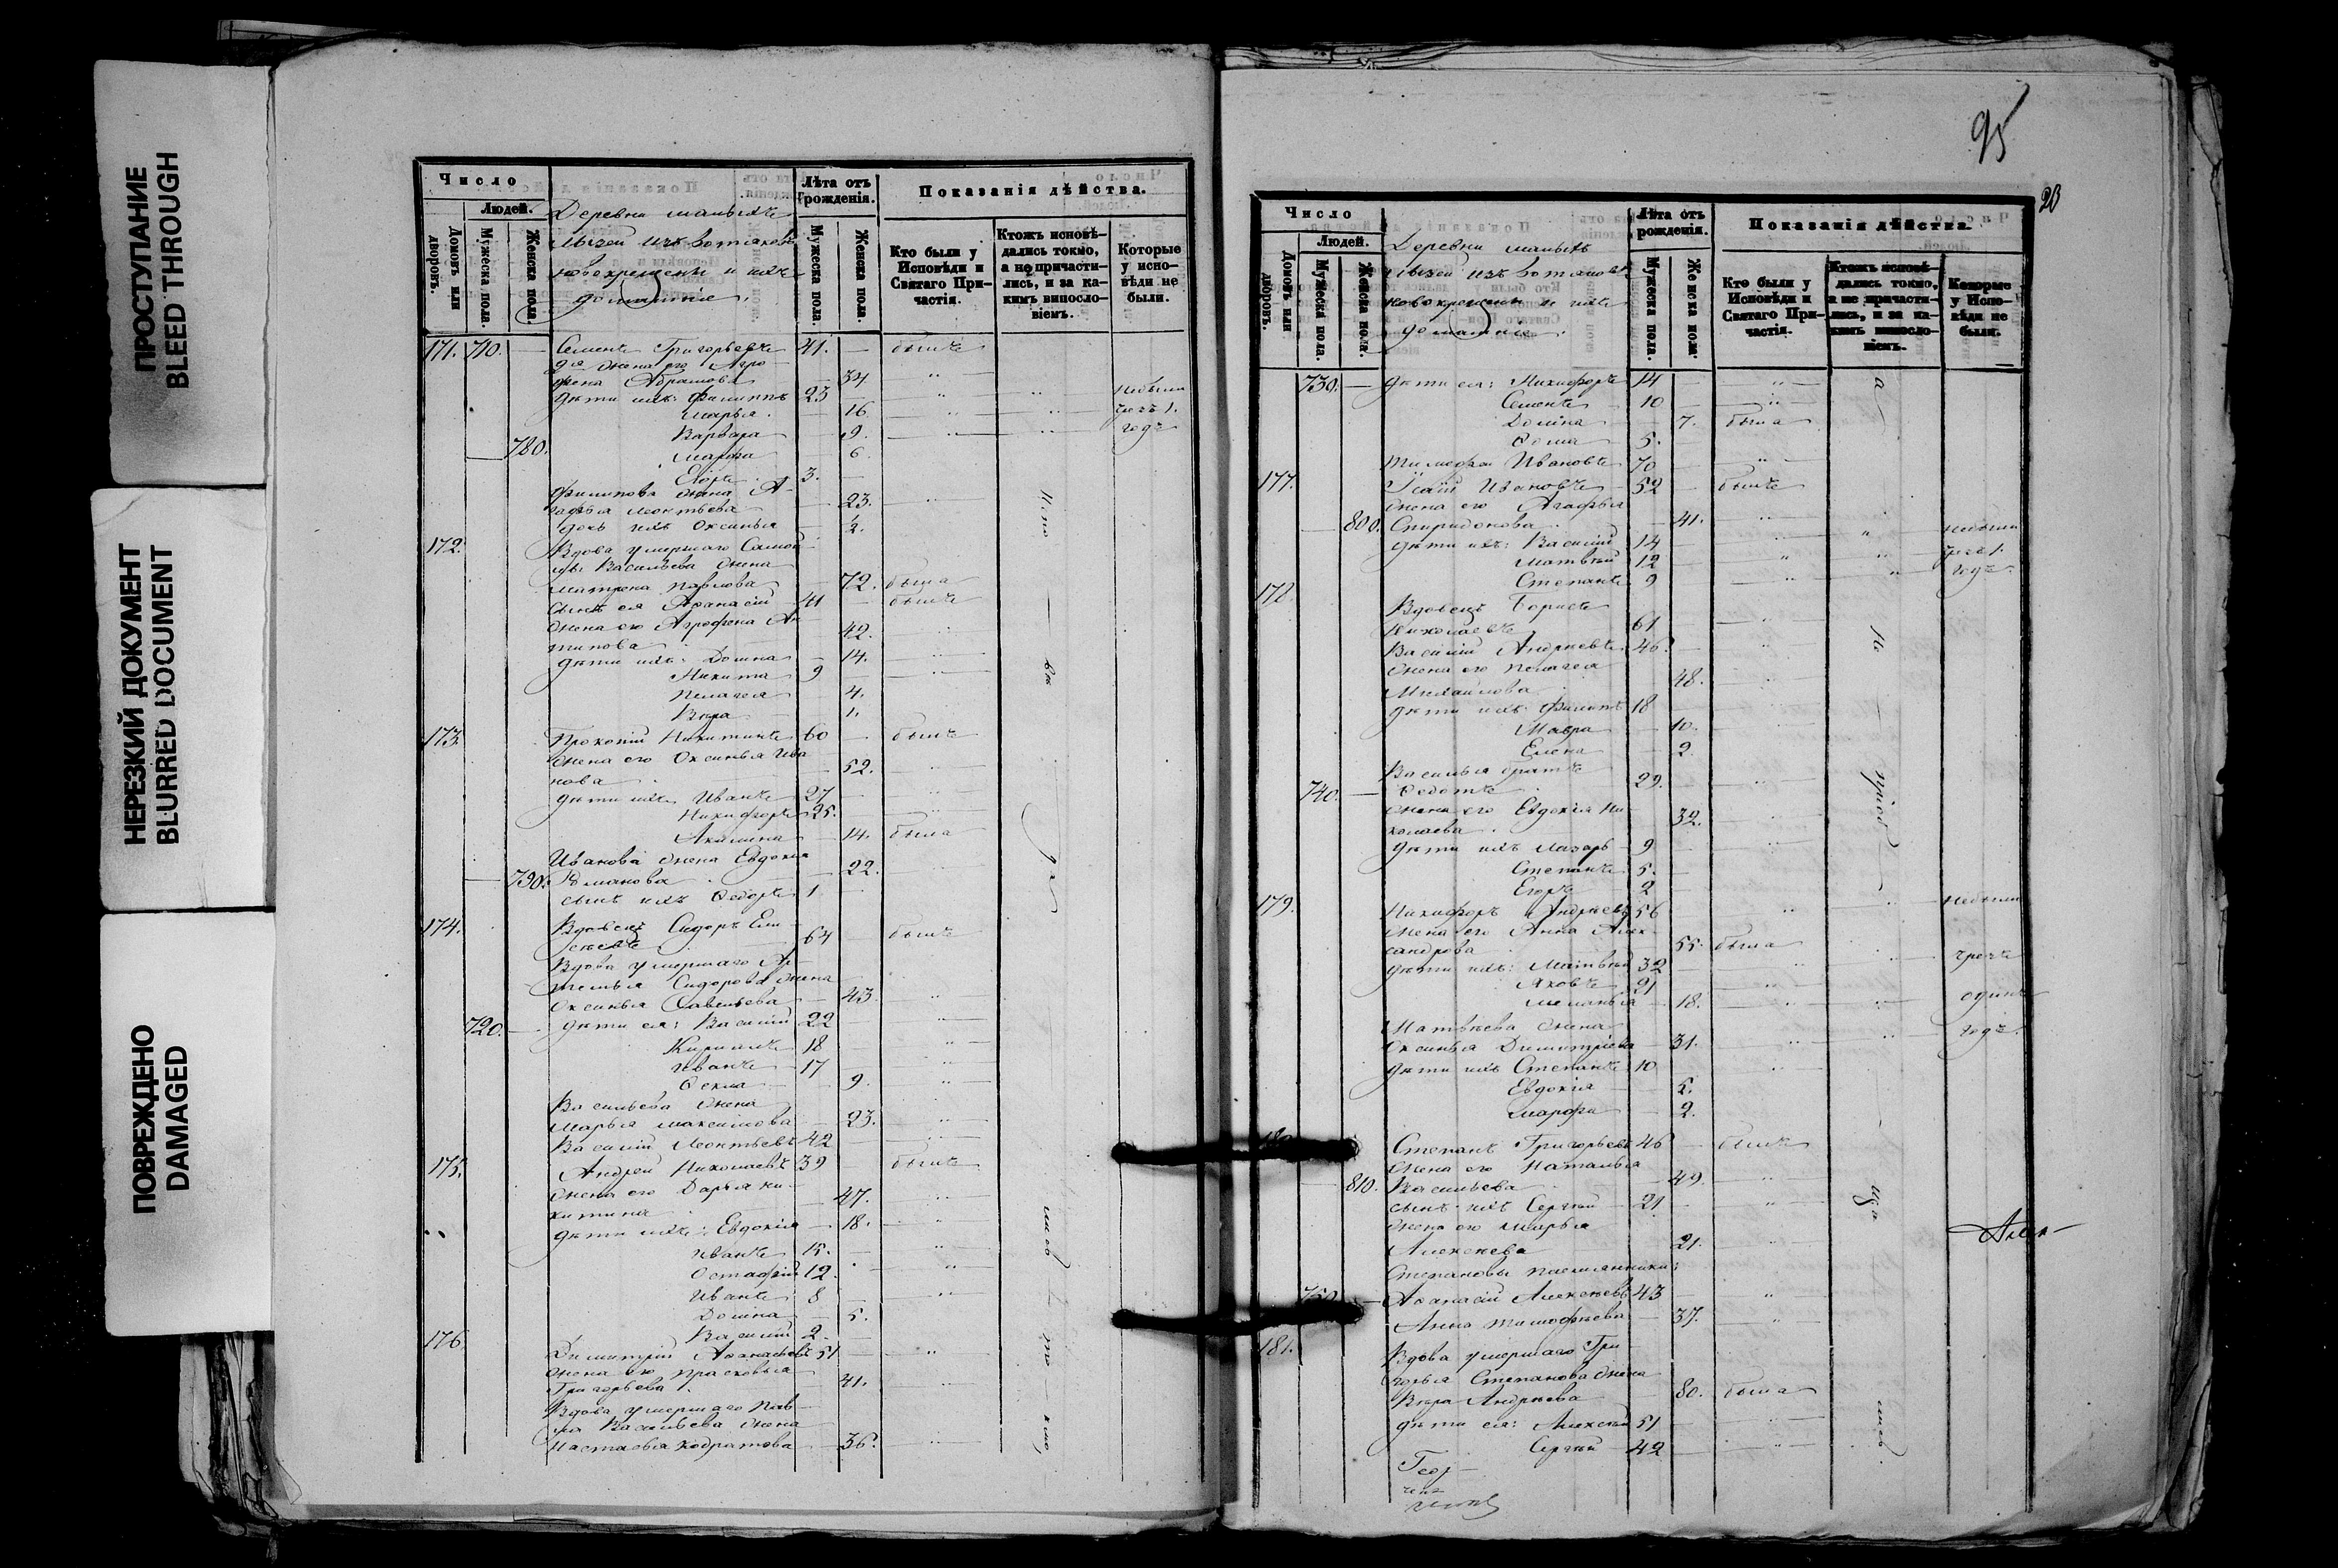 ПРОСТУПАНИЕ
BLEED THROUGH
НЕРЕЗКИЙ ДОКУМЕНТ
BLURRED DOCUMENT
ПОВРЕЖДЕНО
DAMAGED
Число
Людей.
Домовъ или дворовъ.
Мужеска пола.
Женска пола.
Деревни малыхъ
изъ вотяковъ
новокрещены и ихъ
домашніе.
Лѣта отъ рожденія.
Мужеска пола.
Женска пола.
Показанія дѣйства.
Кто были у Исповѣди и Святаго Причастія.
Ктожъ исповѣдались токмо, а не причастились, и за какимъ винословіемъ.
Которые у исповѣди не были.
171. 710. — Семенъ Григорьевъ 41. — былъ
жена его Агро-
фена Абрамова — 34 "
дѣти ихъ: Филиппъ 23 — " " небыли
Марья — 16 " "
780. Варвара — 9. " " годъ
Марфа — 6
Егоръ 3. —
Филипова жена А-
гафья Леонтьева — 23. "
дочь ихъ Оксинья — ½.
172. Вдова умершаго
Васильева жена
Матрена Павлова — 72. была
сынъ ея Афанасій 41 — былъ
жена его Агрофена Ан-
типова — 42. "
дѣти ихъ: Домна — 14. "
Никита 9 — "
Пелагея — 4.
Вѣра — 1.
173. Прокопій Никитинъ 60 — былъ
жена его Оксинья Ива-
нова — 52. "
дѣти ихъ Иванъ 27 — "
Никифоръ 25. — "
Акилина — 14. была
Иванова жена Евдокія
790. Романова — 22.
сынъ ихъ Ѳедоръ 1 —
174. Вдовецъ Сидоръ Ели-
сѣевъ 64 — былъ
Вдова умершаго Ар-
темья Сидорова жена
Оксинья Савельева — 43 "
720. — дѣти ея: Василій 22 — "
Кирилъ 18 — "
Иванъ 17 — "
Ѳекла — 9. "
Васильева жена
Марья Максимова — 23. "
Василій Леонтьевъ 42 — "
175. Андрей Николаевъ 39 — былъ
жена его Дарья Ни-
китина — 47. "
дѣти ихъ: Евдокія — 18. "
Иванъ 15. — "
Остафій 12. — "
Иванъ 8 — "
Домна — 5.
Василій 2. —
176. Димитрій Афанасьевъ 51 — "
жена его Прасковья
Григорьева — 41. "
Вдова умершаго Пав-
ла Васильева жена
Настасья Кодратова — 36. "
95
20
Число
Людей.
Домовъ или дворовъ.
Мужеска пола.
Женска пола.
Деревни малыхъ
изъ вотяковъ
новокрещены и ихъ
домашніе.
Лѣта отъ рожденія.
Мужеска пола.
Женска пола.
Показанія дѣйства.
Кто были у Исповѣди и Святаго Причастія.
Ктожъ исповѣдались токмо, а не причастились, и за какимъ винословіемъ.
Которые у Исповѣди не были.
730. — дѣти ея: Никифоръ 14 — "
Семенъ 10 — "
Домна — 7. была
Ѳома 5. —
Тимофей Ивановъ 70 — "
177. Исай Ивановъ 52 — былъ
жена его Агафья
800. Спиридонова — 41. " небыли
дѣти ихъ: Василій 14 — " "
Матвѣй 12 — " "
Степанъ 9 — " " годъ.
178. Вдовецъ Борисъ
Николаевъ 61 — "
Василій Андреевъ 46. — "
жена его Пелагея
Михайлова — 48. "
дѣти ихъ: Филипъ 18 — "
Мавра — 10. "
Елена — 2.
Васильи братъ
740. — Ѳедотъ 29. — "
жена его Евдокія Ни-
колаева — 32. "
дѣти ихъ Лазарь 9 — "
Степанъ 5. —
Егоръ 2 —
179. Никифоръ Андреевъ 56 — " небыли
жена его Анна Алек-
сандрова — 55. была
дѣти ихъ: Матвѣй 32 — "
Яковъ 21 — " одинъ
Меланья — 18. "
Матвѣева жена годъ.
Оксинья Димитріева — 31. "
дѣти ихъ Степанъ 10 — "
Евдокія — 5.
Марфа — 2.
180. Степанъ Григорьевъ 46 — былъ
жена его Наталья
810. Васильева — 49. "
сынъ ихъ Сергѣй 21 — "
жена его Марья
Алексѣева — 21. "
Степановы племянники:
750. — Афанасій Алексѣевъ 43 — "
Анна Тимофѣева — 37. "
181. Вдова умершаго Гри-
горья Степанова жена
Вѣра Андреева — 80. была
дѣти ея: Алексѣй 51 — "
Сергѣй 42 — "